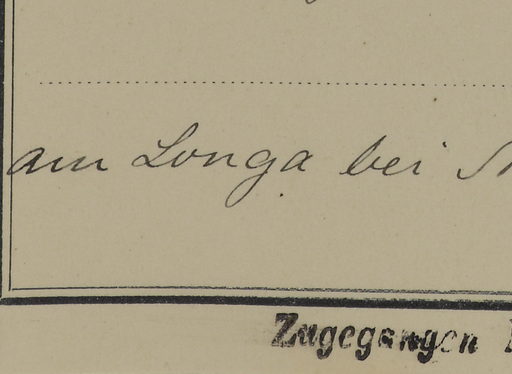 am Longa bei
Zugegangen